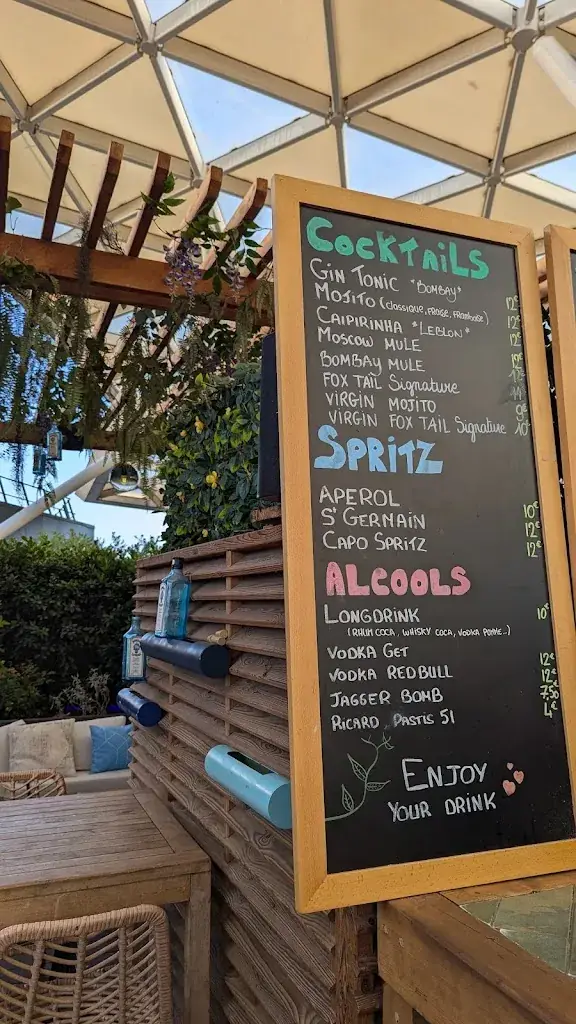 COCKTAILS
GIN TONIC "BOMBAY" 12€
MOJITO (CLASSIQUE, FRAISE, FRAMBOISE) 12€
CAIPIRINHA "LEBLON" 12€
MOSCOW MULE 12€
BOMBAY MULE
FOX TAIL Signature
VIRGIN MOJITO 9€
VIRGIN FOX TAIL Signature 10€
SPRITZ
APEROL 10€
S' GERMAIN 12€
CAPO SPRITZ 12€
ALCOOLS
LONGDRINK 10€
(RHUM COCA, WHISKY COCA, VODKA POMME..)
VODKA GET 12€
VODKA REDBULL 12€
JAGGER BOMB 7,50
RICARD PASTIS 51 4€
ENJOY
YOUR DRINK